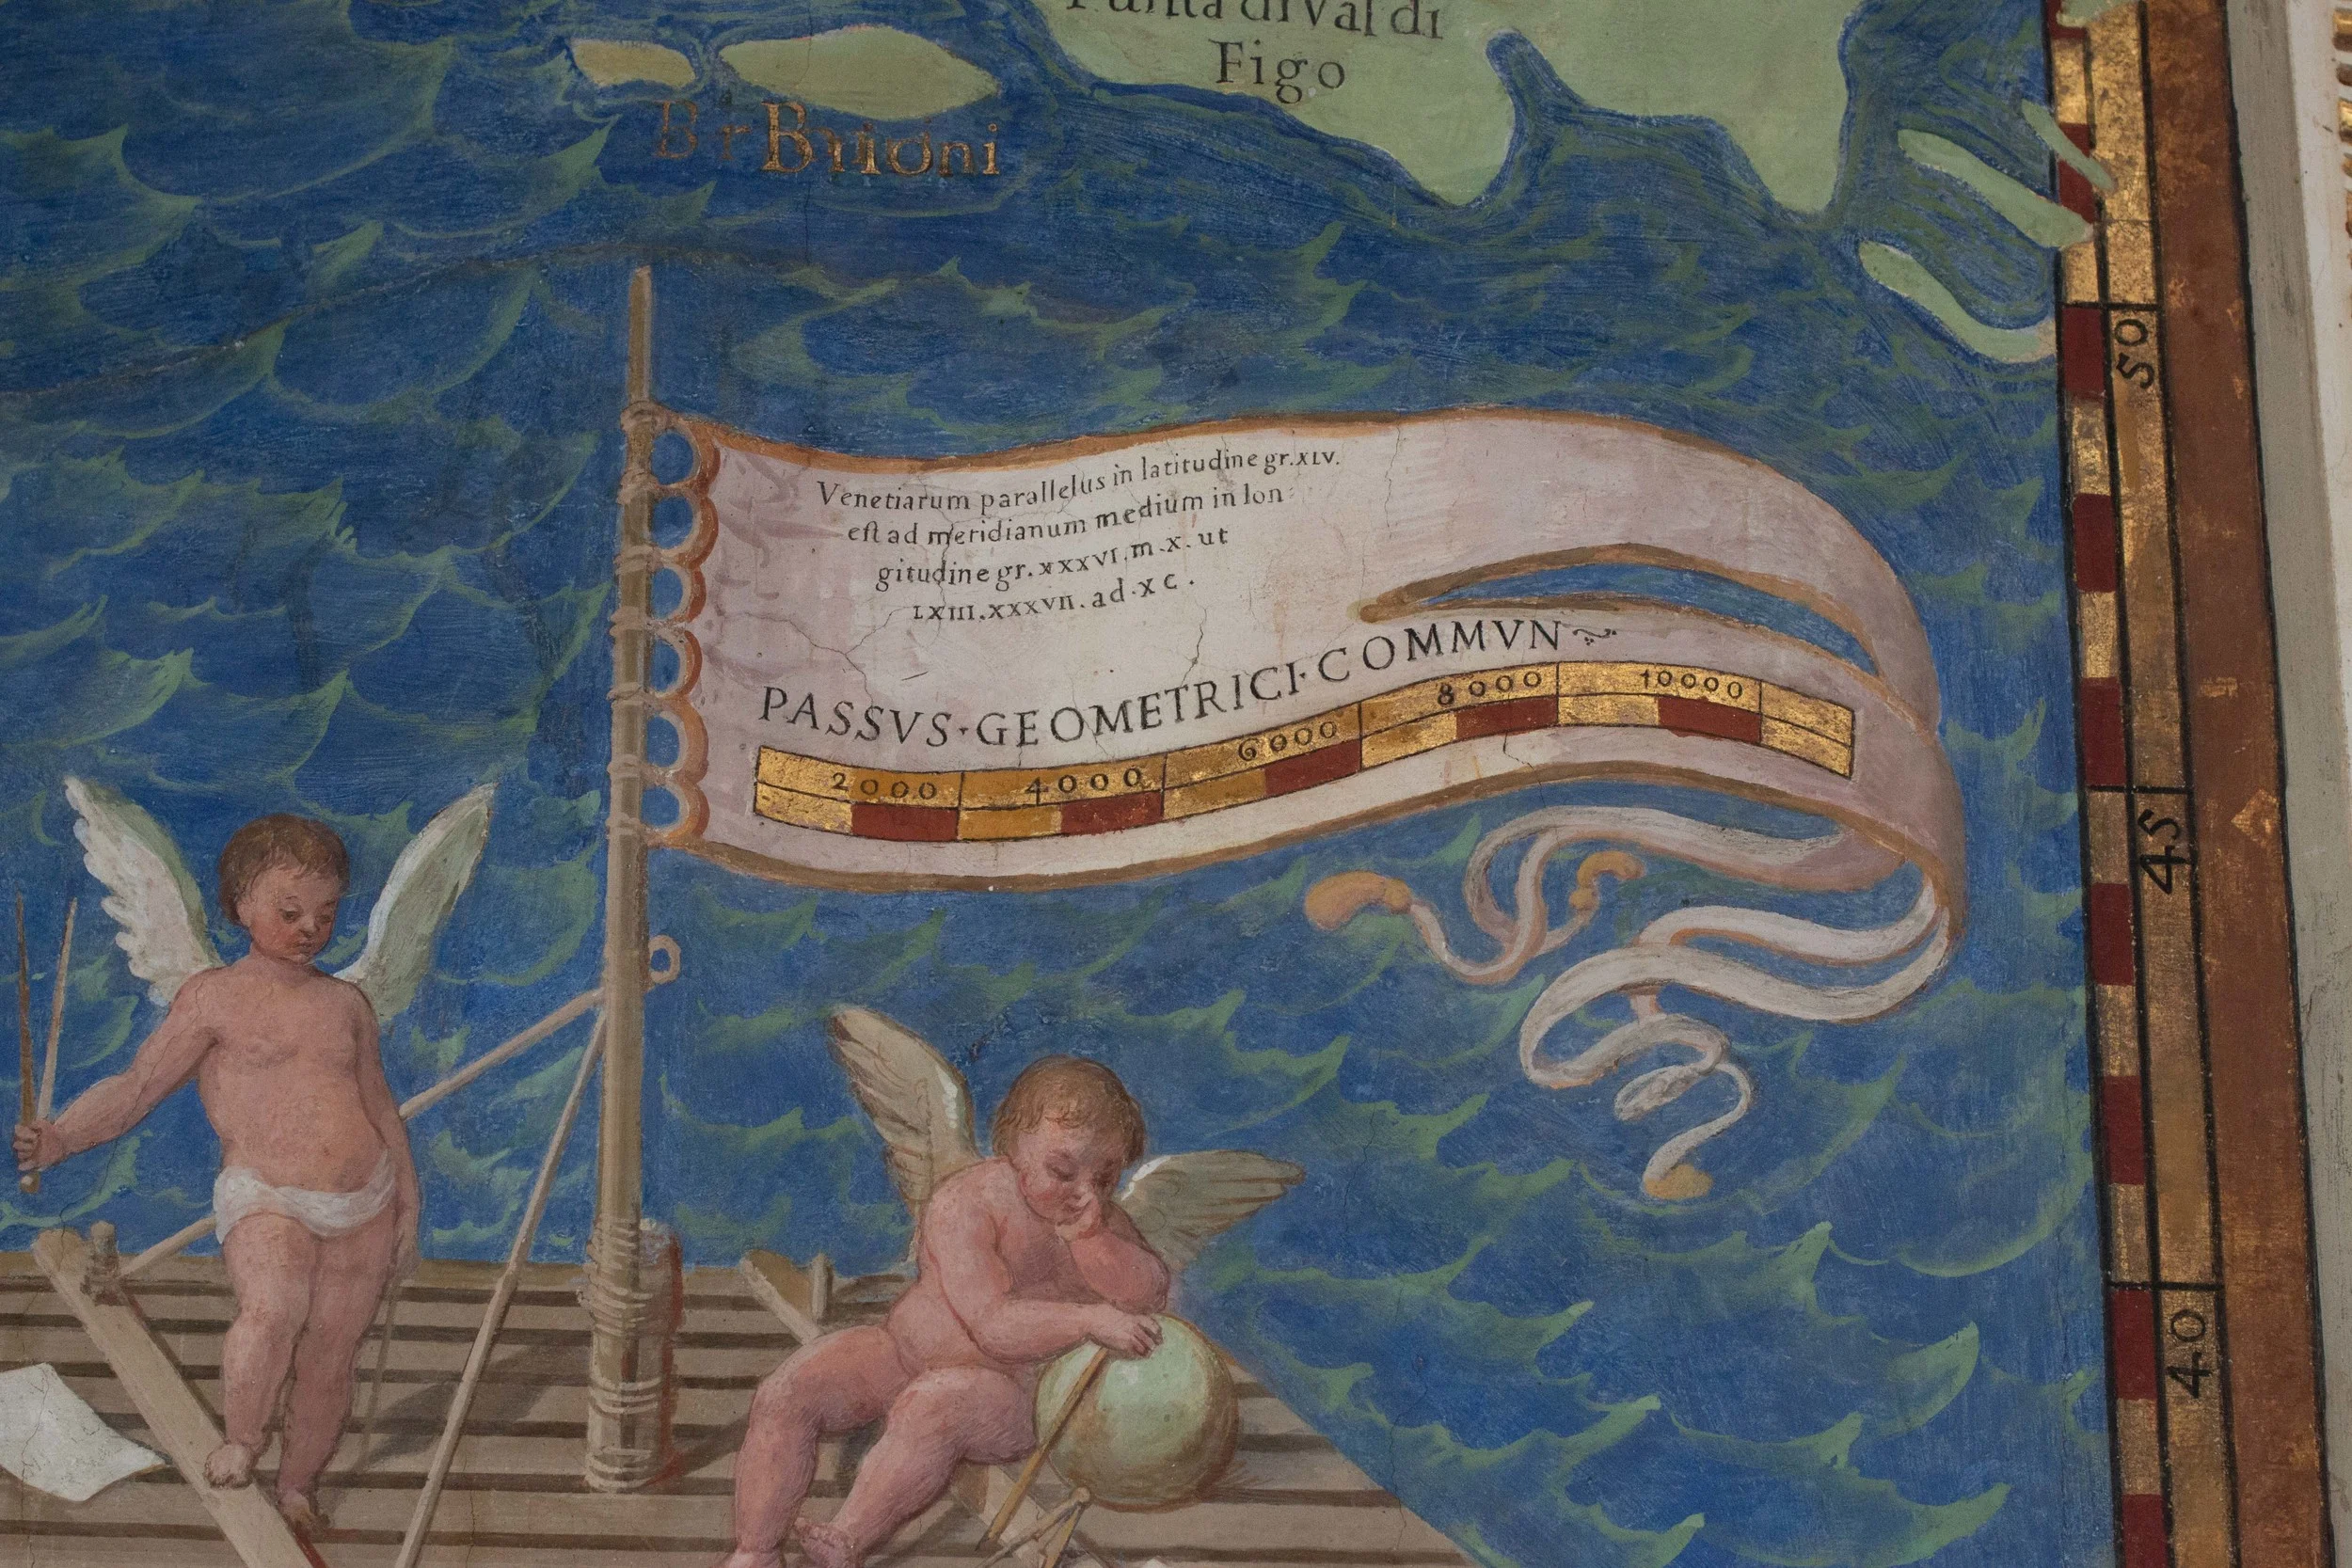 Punta di Val di
Figo
Br Brioni
Venetiarum parallelus in latitudine gr. XLV.
est ad meridianum medium in lon
gitudine gr. XXXVI. m. X. ut
LXIII. XXXVII. ad. XC.
PASSVS·GEOMETRICI·COMMVN
2000 4000 6000 8000 10000
50
45
40